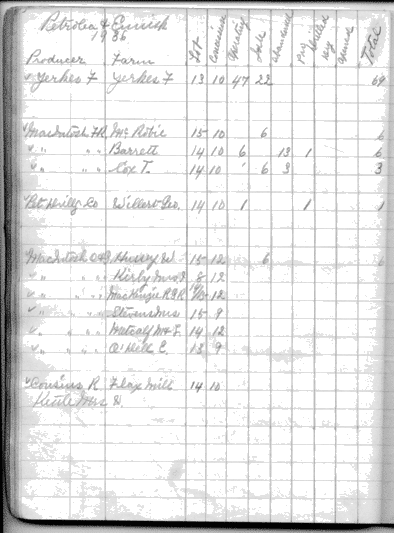 Petrolea & Ennisk
1936
Producer Farm Lot Concession Operating Idle Abandoned Dry Drilled Total
Yerkes F Yerkes F 13 10 47 22 69
MacIntosh FR McRobie 15 10 6 6
" " " Barrett 14 10 6 13 1 6
" " " Cox T. 14 10 6 3 3
Pet Drilly Co Willert Geo. 14 10 1 1 1
MacIntosh Hussey W 15 12 6
" " " Kirby Mrs 8 12
" " " MacKenzie R 12
" " " Stevens Mrs 15 9
" " " Metcalf 14 12
" " " O'Neill E. 13 9
Cousins R Flax Mill 14 10
Kettle Mrs